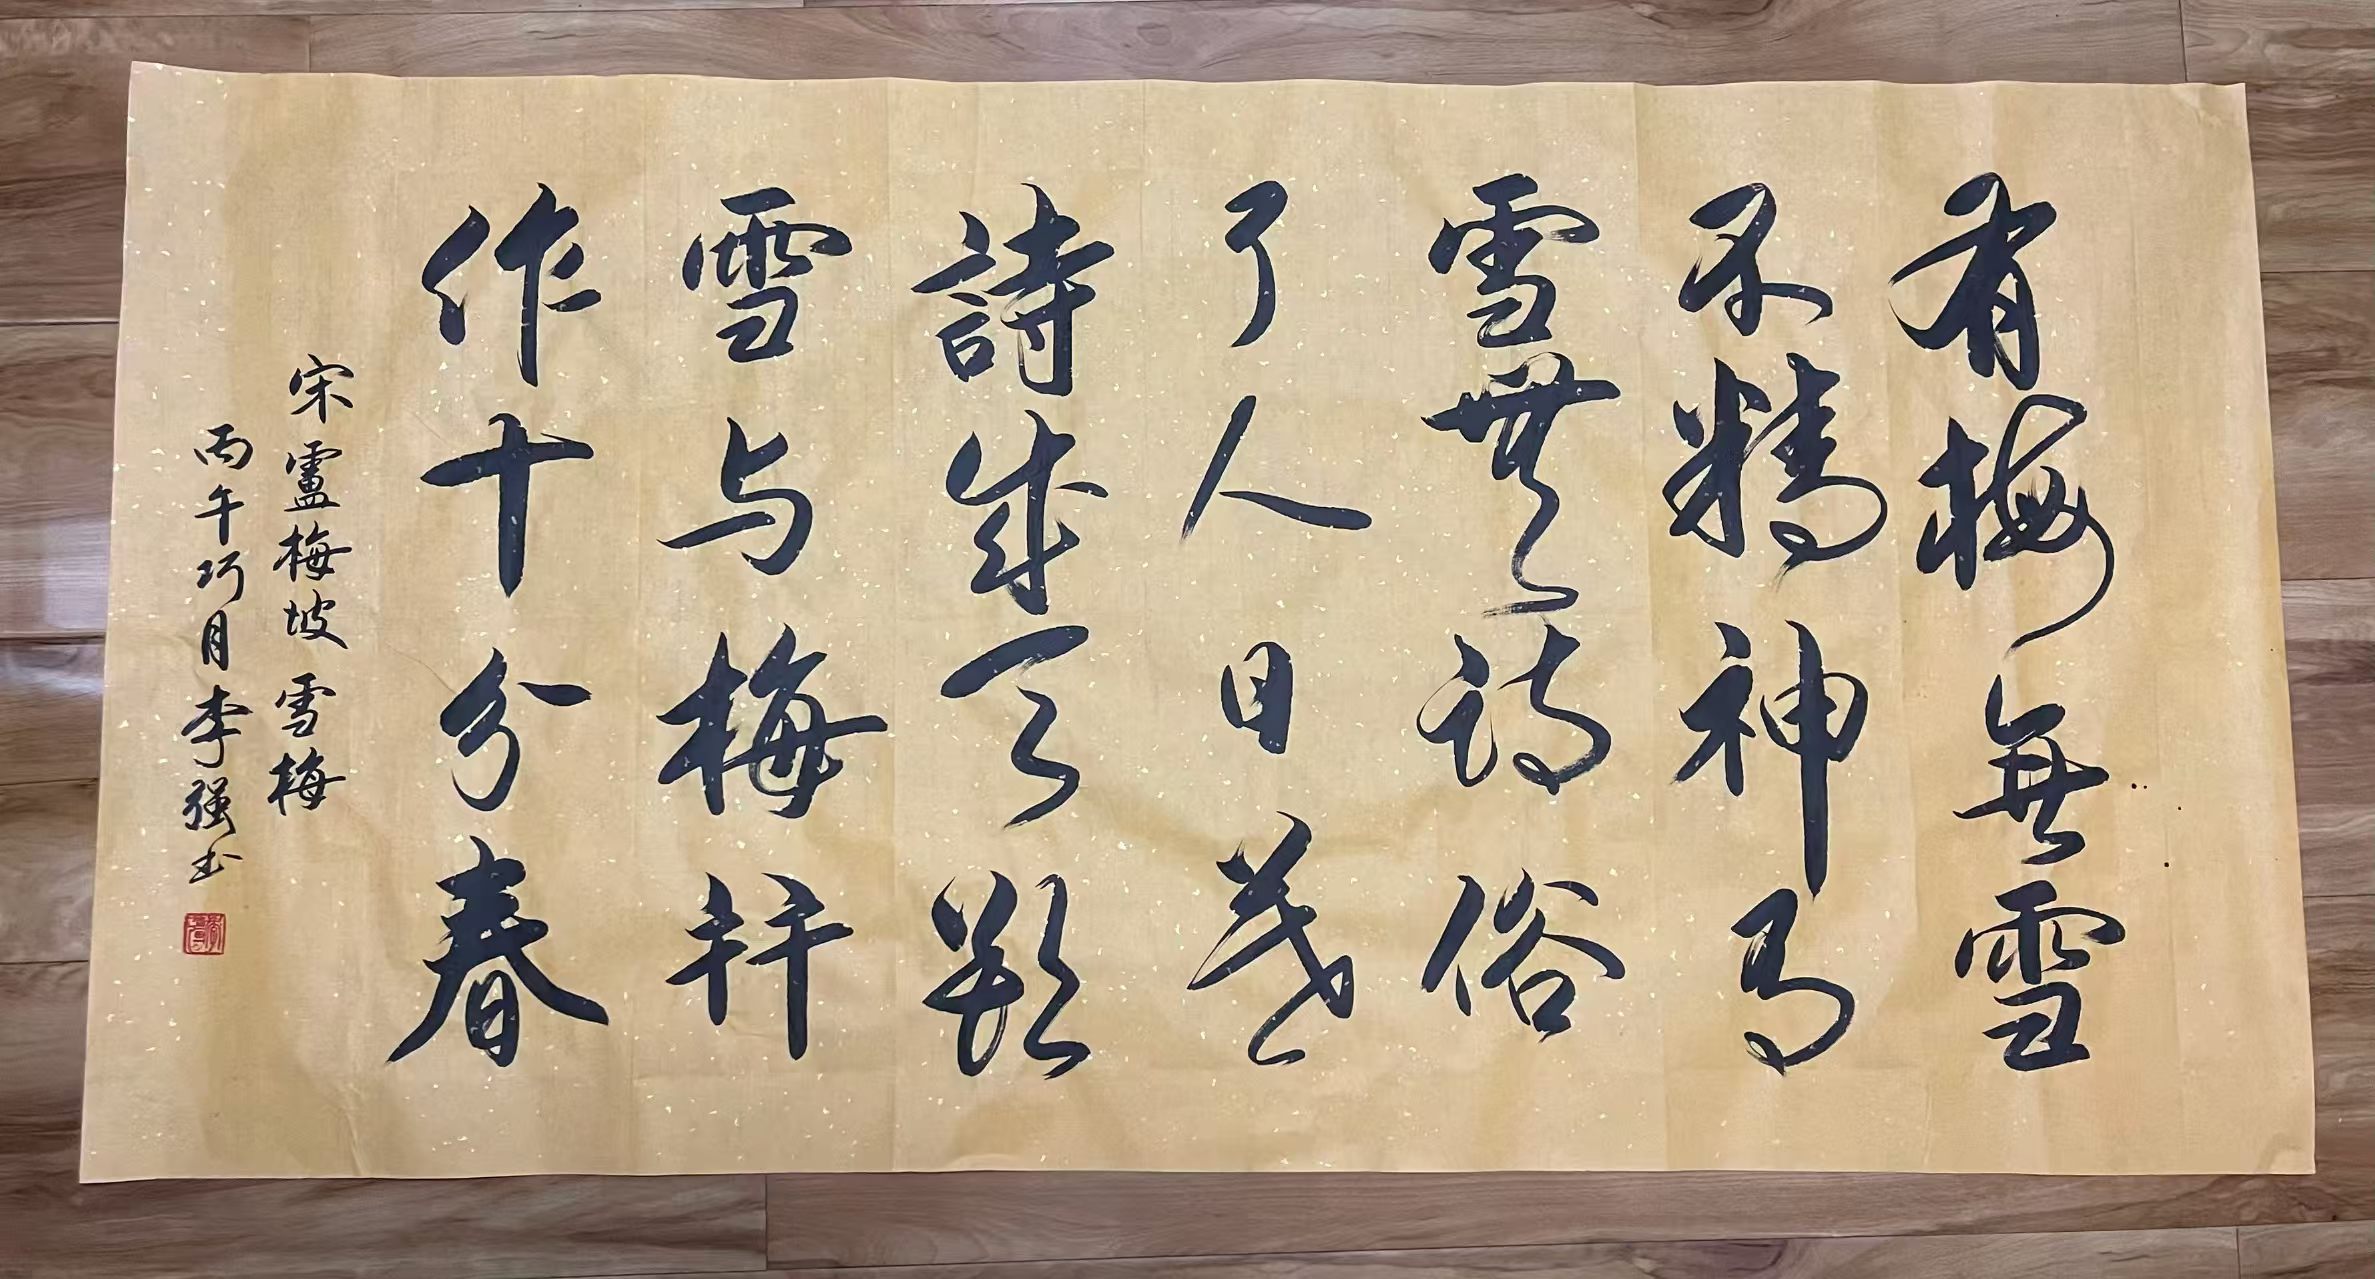 有梅無雪
不精神有
雪無詩俗
了人日暮
詩成天欲
雪与梅并
作十分春
宋盧梅坡雪梅
丙午巧月李强书